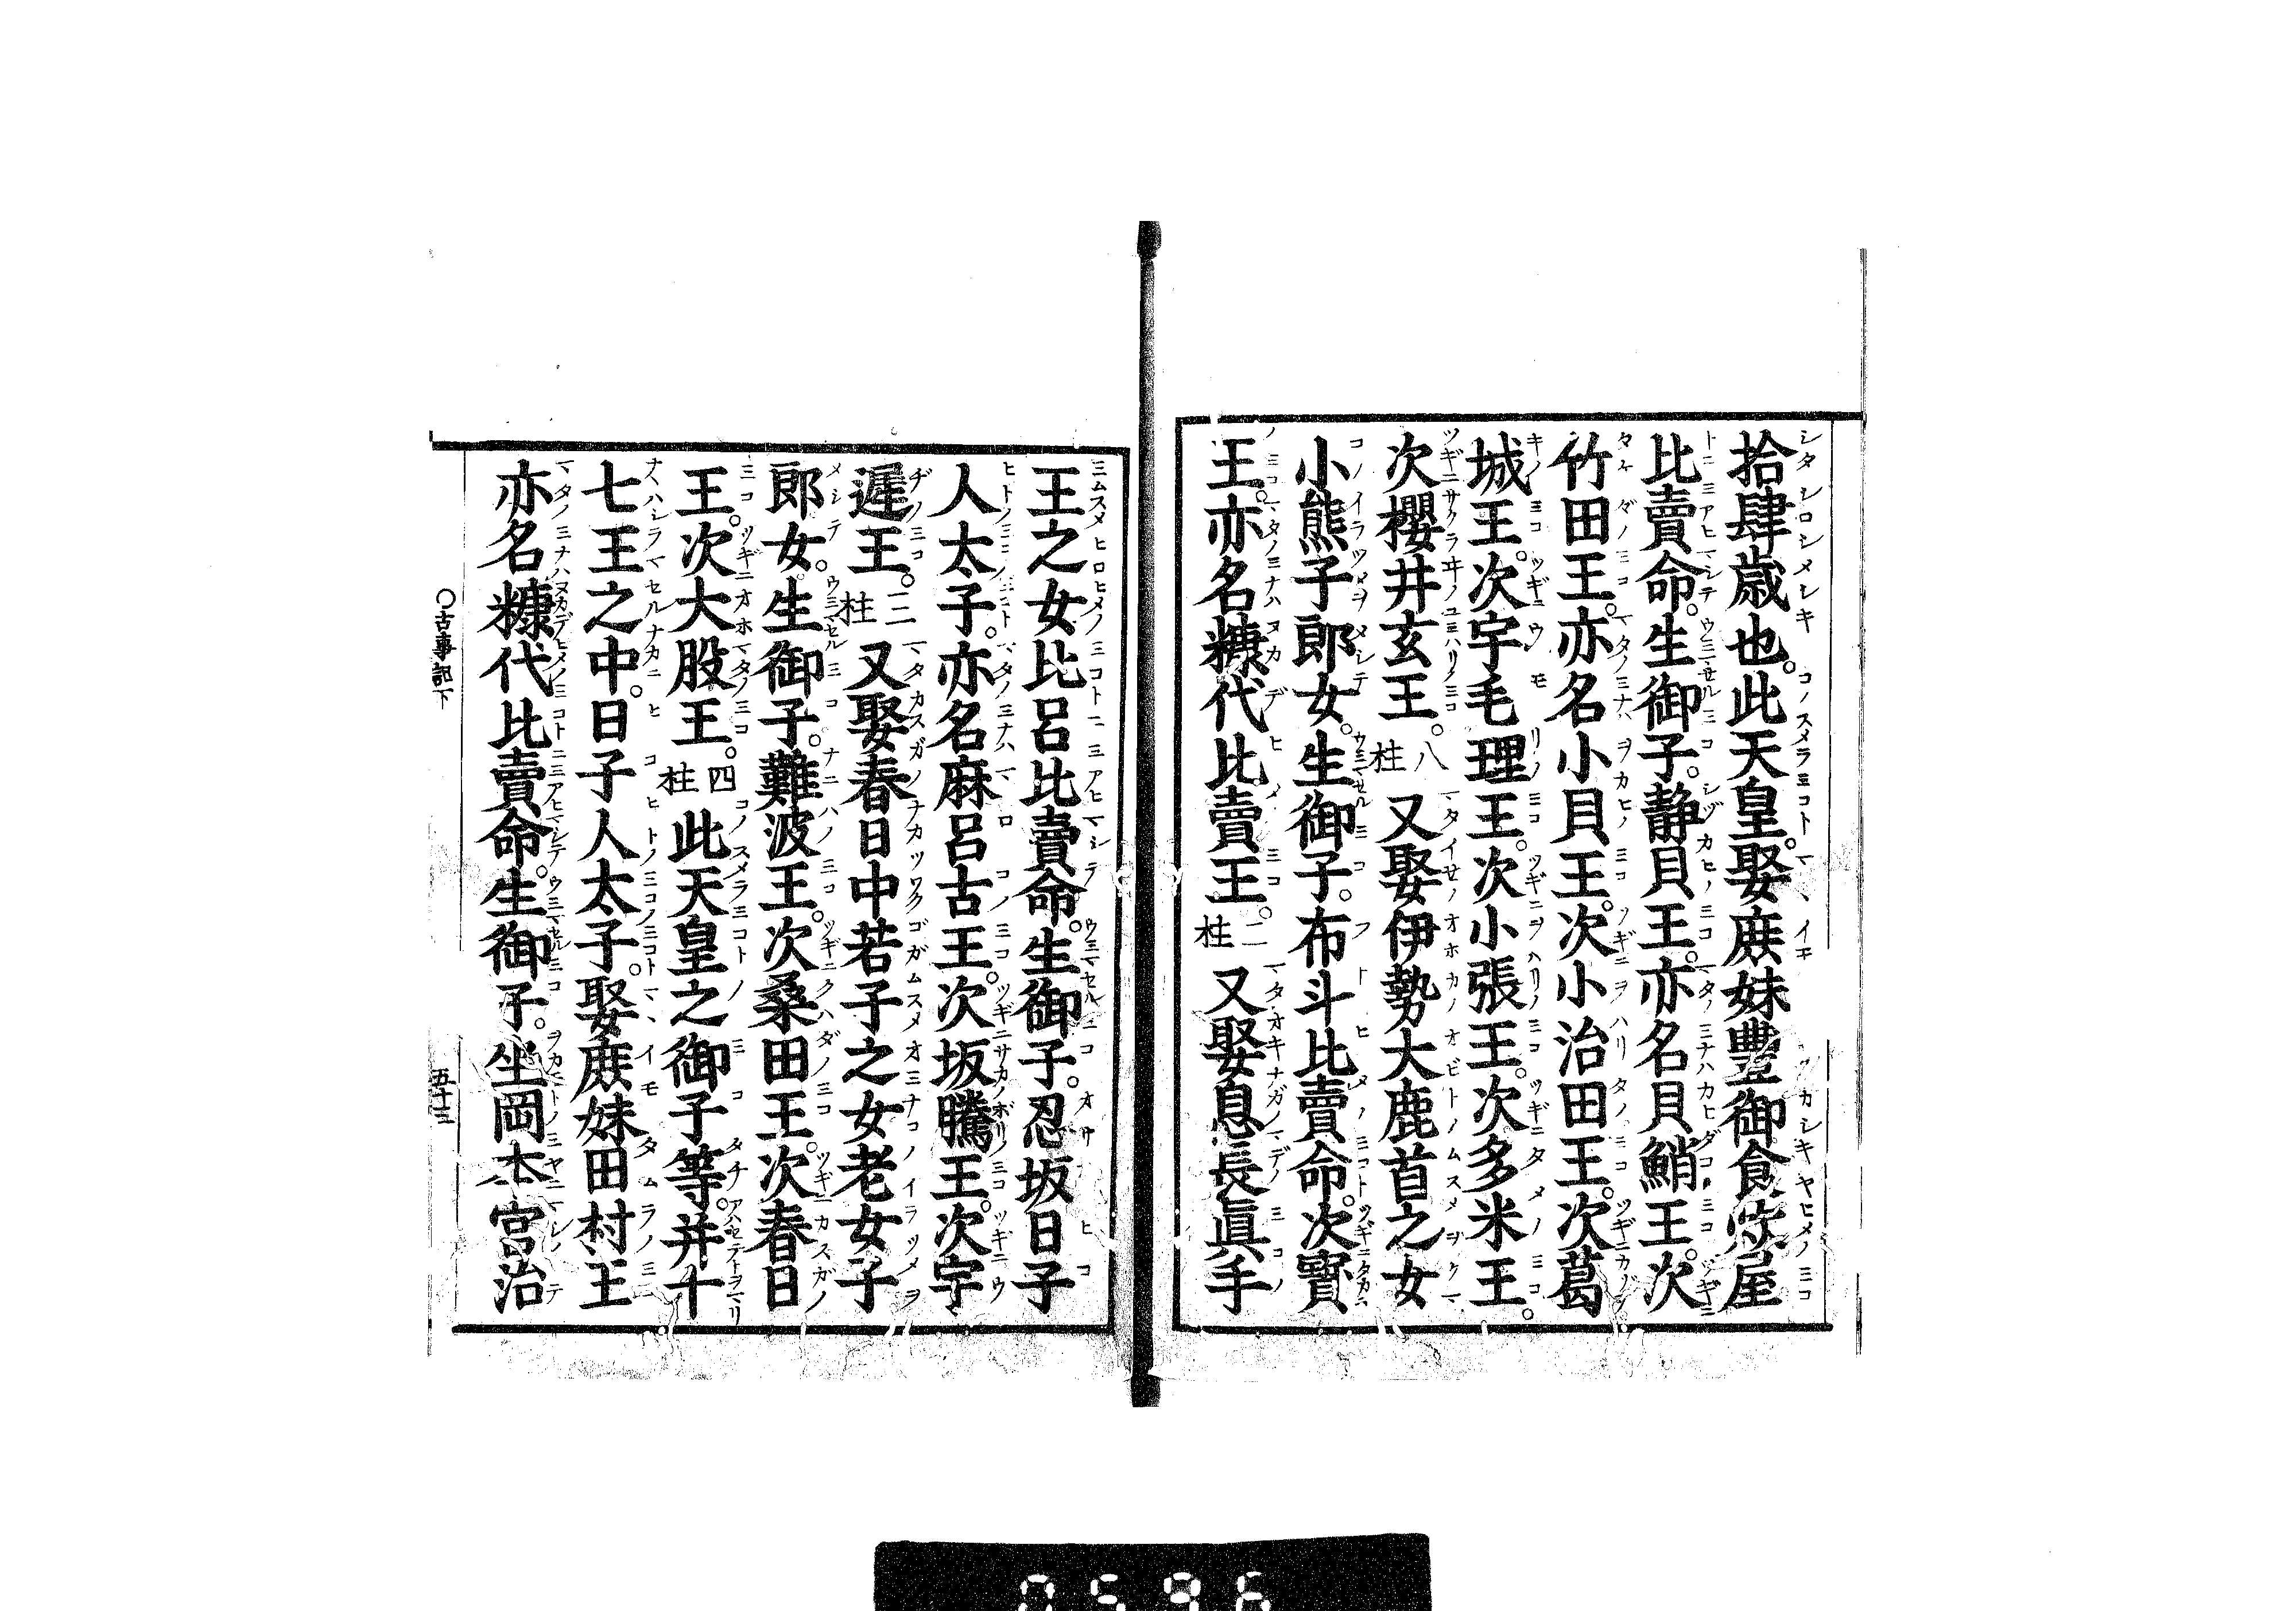 拾肆歳也。此天皇。娶庶妹豐御食炊屋
比賣命。生御子。静貝王。亦名貝鮹王。次
竹田王。亦名小貝王。次小治田王。次葛
城王。次宇毛理王。次小張王。次多米王。
次櫻井玄王。八柱又娶伊勢大鹿首之女
小熊子郎女。生御子。布斗比賣命。次寶
王。亦名糠代比賣王。二柱又娶息長眞手
王之女比呂比賣命。生御子。忍坂日子
人太子。亦名麻呂古王。次坂騰王。次宇
遲王。三柱又娶春日中若子之女老女子
郎女。生御子。難波王。次桑田王。次春日
王。次大股王。四柱此天皇之御子等。并十
七王之中。日子人太子。娶庶妹田村王
亦名糠代比賣命。生御子。坐岡本宮治
〇古事記下
五十三
0596